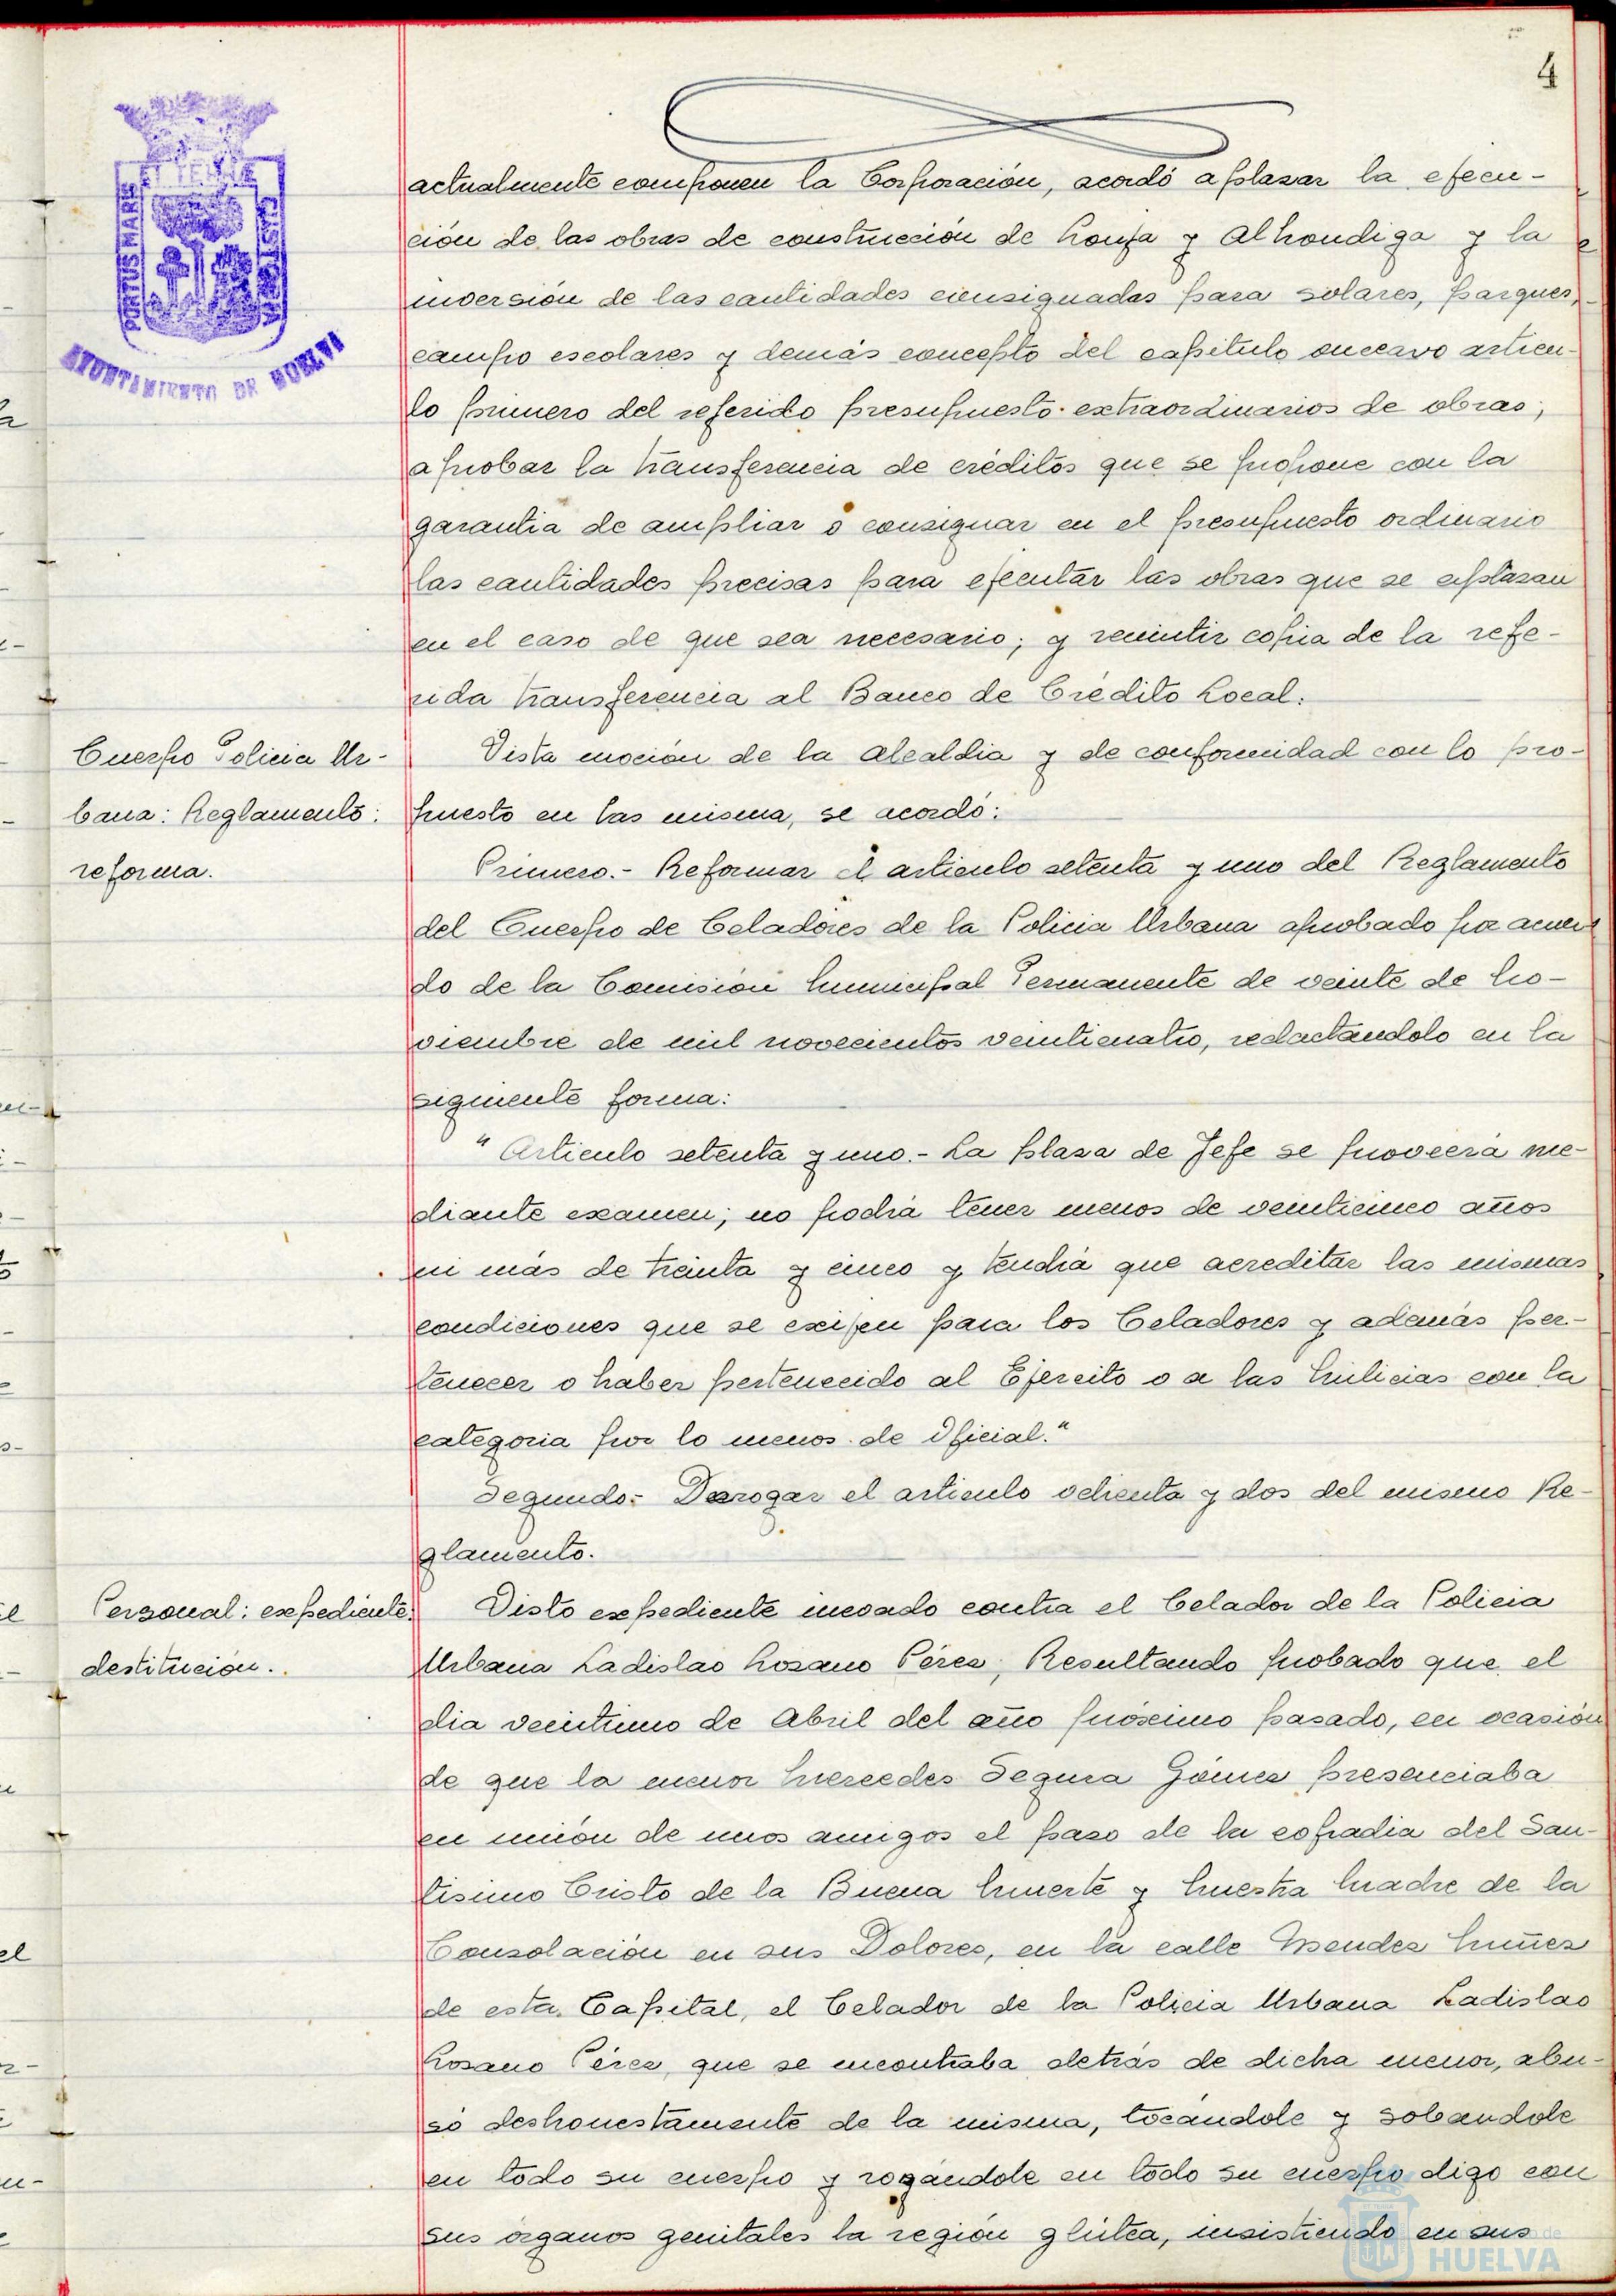 4
PORTUS MARIS
ET TERRÆ
CUSTODIA
AYUNTAMIENTO DE HUELVA
actualmente componen la Corporación, acordó aplazar la ejecu-
ción de las obras de construcción de Lonja y Alhondiga y la
inversión de las cantidades consignadas para solares, parques,
campo escolares y demás concepto del capitulo onceavo articu-
lo primero del referido presupuesto extraordinarios de obras;
aprobar la transferencia de créditos que se propone con la
garantia de ampliar o consignar en el presupuesto ordinario
las cantidades precisas para ejecutar las obras que se aplazan
en el caso de que sea necesario; y remintir copia de la refe-
rida transferencia al Banco de Crédito Local.
Cuerpo Policia Ur-
bana: Reglamento:
reforma.
Vista moción de la Alcaldia y de conformidad con lo pro-
puesto en las misma, se acordó:
Primero.- Reformar el articulo setenta y uno del Reglamento
del Cuerpo de Celadores de la Policia Urbana aprobado por acuer
do de la Comisión Municipal Permanente de veinte de No-
viembre de mil novecientos veinticuatro, redactandolo en la
siguiente forma:
"Articulo setenta y uno.- La plaza de Jefe se proveerá me-
diante examen; no podrá tener menos de veinticinco años
ni más de treinta y cinco y tendrá que acreditar las mismas
condiciones que se exijen para los Celadores y además per-
tenecer o haber pertenecido al Ejercito o a las Milicias con la
categoria por lo menos de Oficial."
Segundo:- Derogar el articulo ochenta y dos del mismo Re-
glamento.
Personal: expediente:
destitución.
Visto expediente incoado contra el Celador de la Policia
Urbana Ladislao Lozano Pérez; Resultando probado que el
dia veintiuno de Abril del año próximo pasado, en ocasión
de que la menor Mercedes Segura Gómez presenciaba
en unión de unos amigos el paso de la cofradia del San-
tisimo Cristo de la Buena Muerte y Nuestra Madre de la
Consolación en sus Dolores, en la calle Mendez Nuñez
de esta Capital, el Celador de la Policia Urbana Ladislao
Lozano Pérez, que se encontraba detrás de dicha menor, abu-
só deshonestamente de la misma, tocándole y sobandole
en todo su cuerpo y rozándole en todo su cuerpo digo con
sus órganos genitales la región glútea, insistiendo en sus
HUELVA